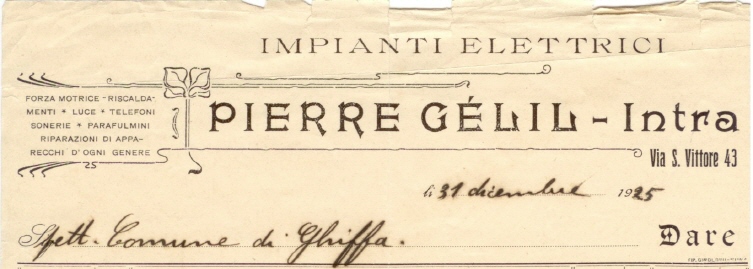 IMPIANTI ELETTRICI
FORZA MOTRICE - RISCALDA-
MENTI * LUCE * TELEFONI
SONERIE * PARAFULMINI
RIPARAZIONI DI APPA-
RECCHI D'OGNI GENERE
25
PIERRE GÉLIL - Intra
Via S. Vittore 43
li 31 dicembre 1925
Spett. Comune di Ghiffa. Dare